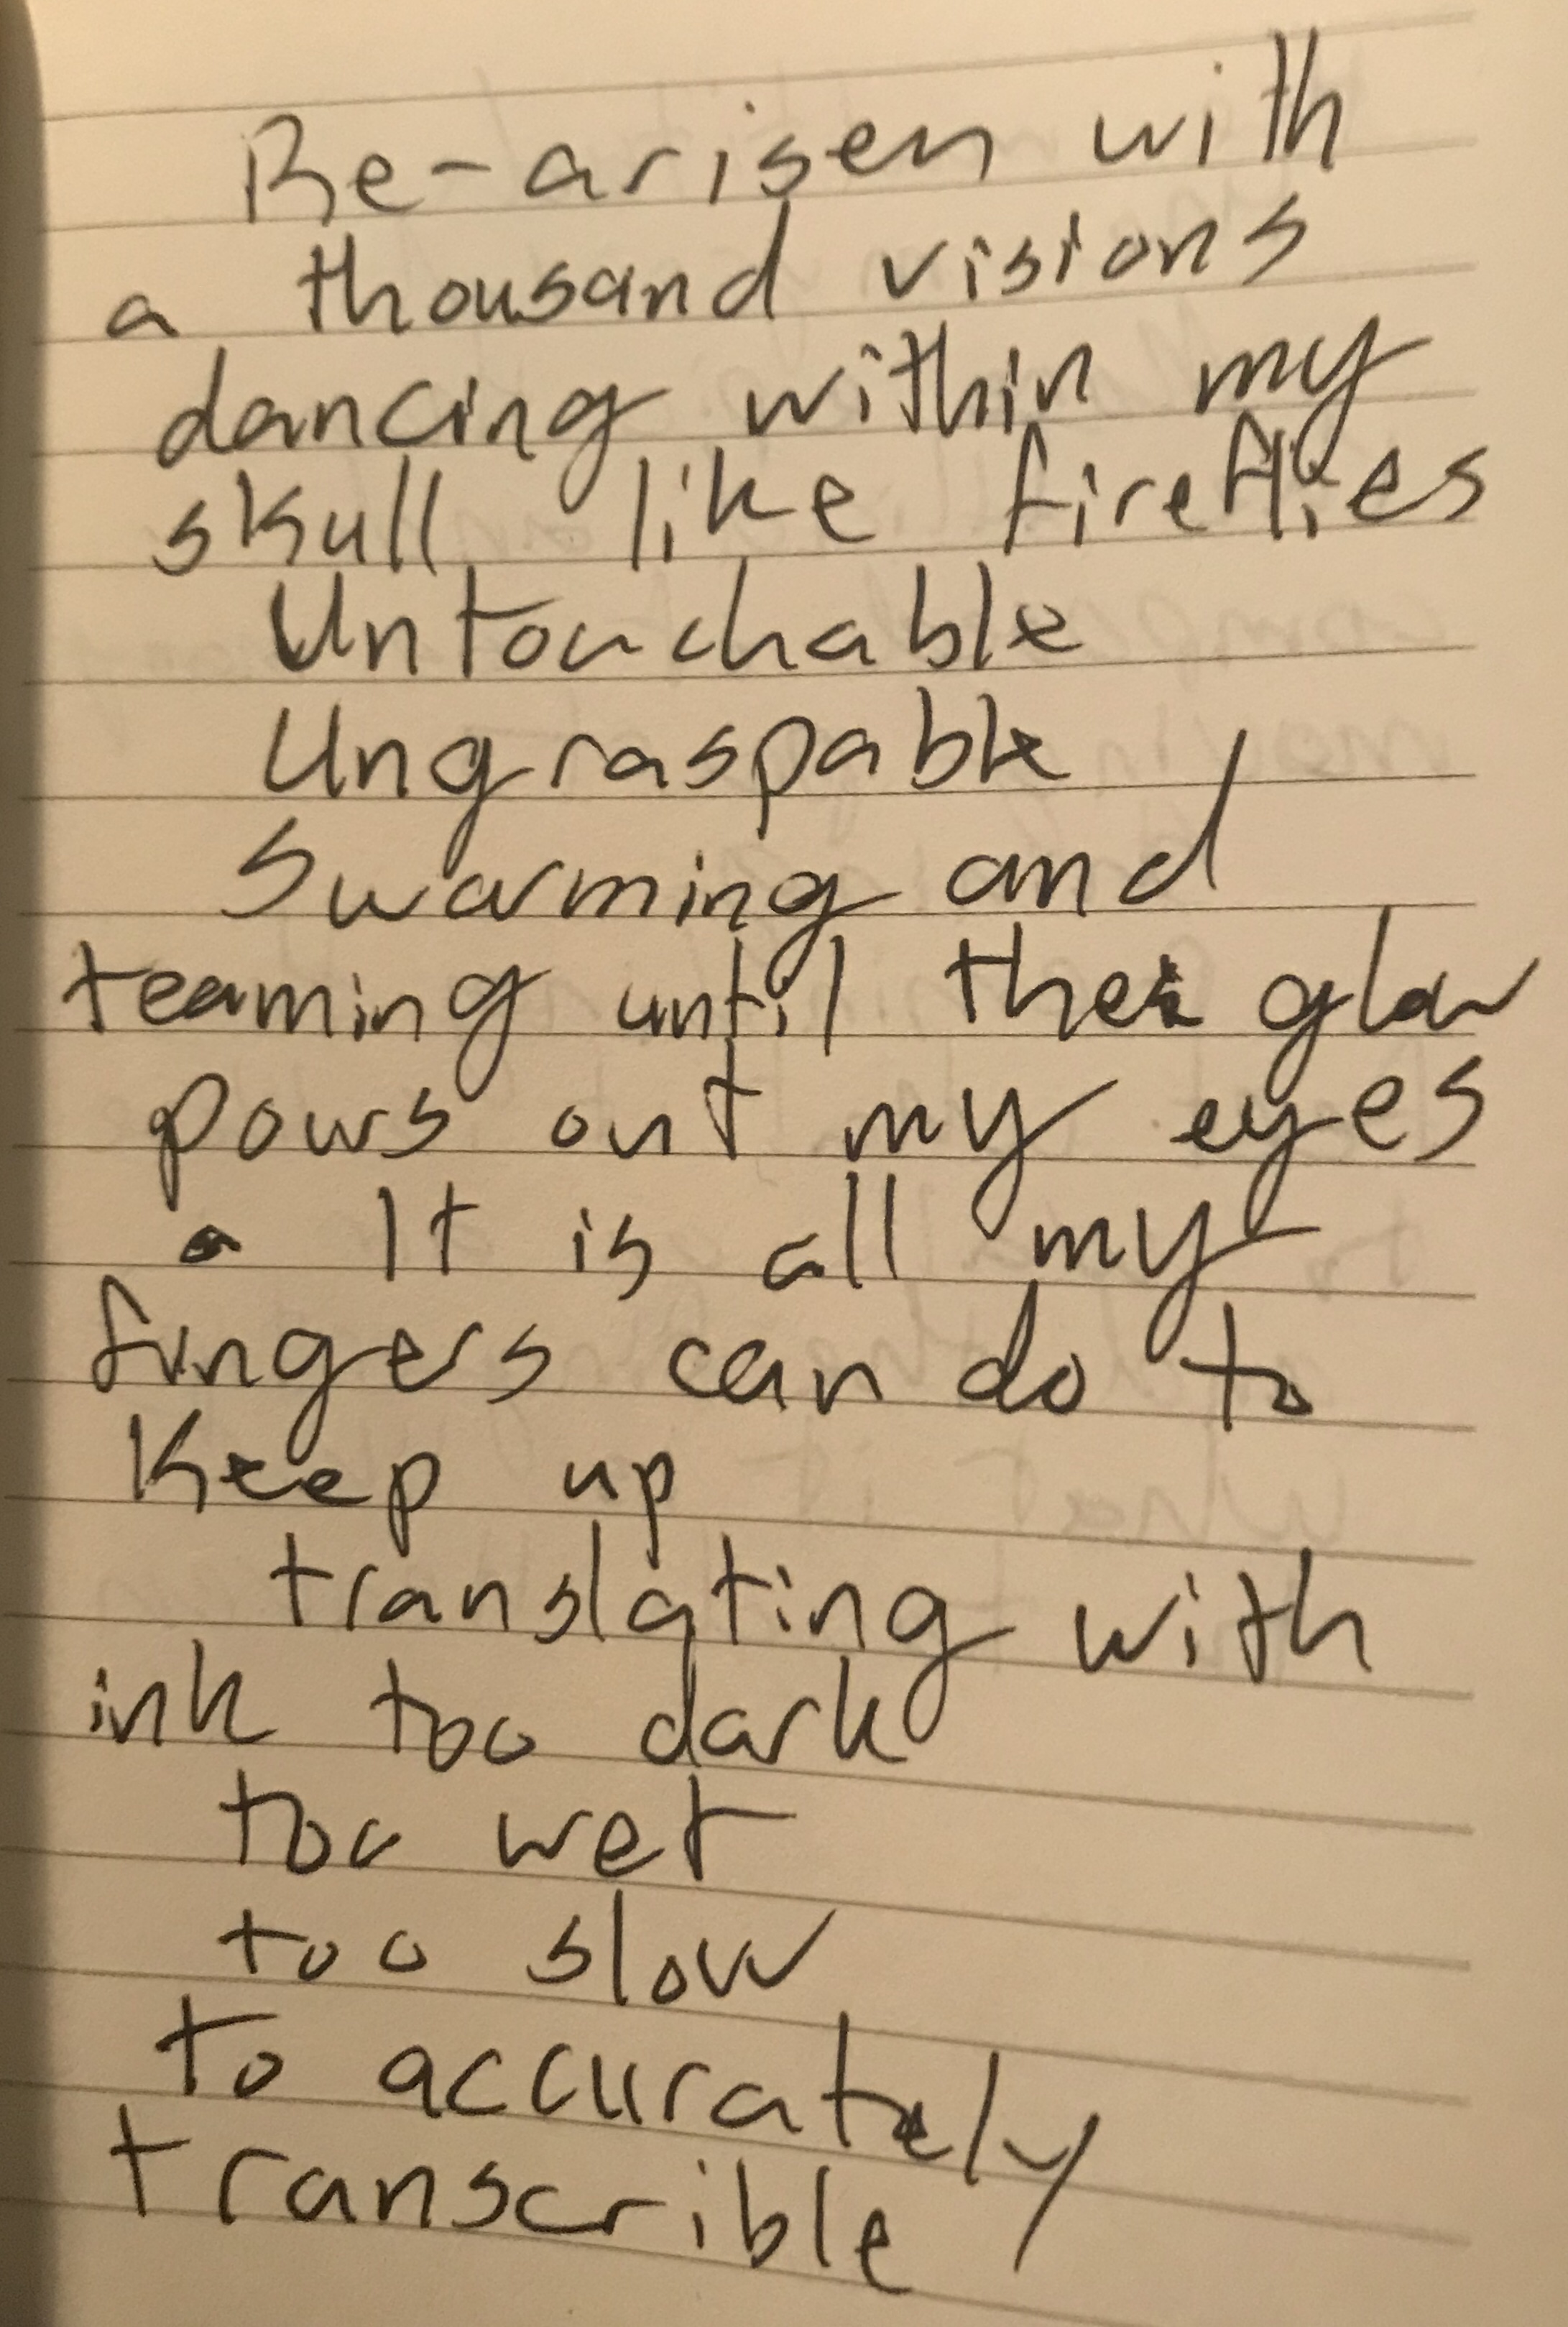 Re-arisen with
a thousand visions
dancing within my
skull like fireflies
Untouchable
Ungraspable
Swarming and
teaming until the glow
pours out my eyes
a It is all my
fingers can do to
keep up
translating with
ink too dark
too wet
too slow
to accurately
transcrible